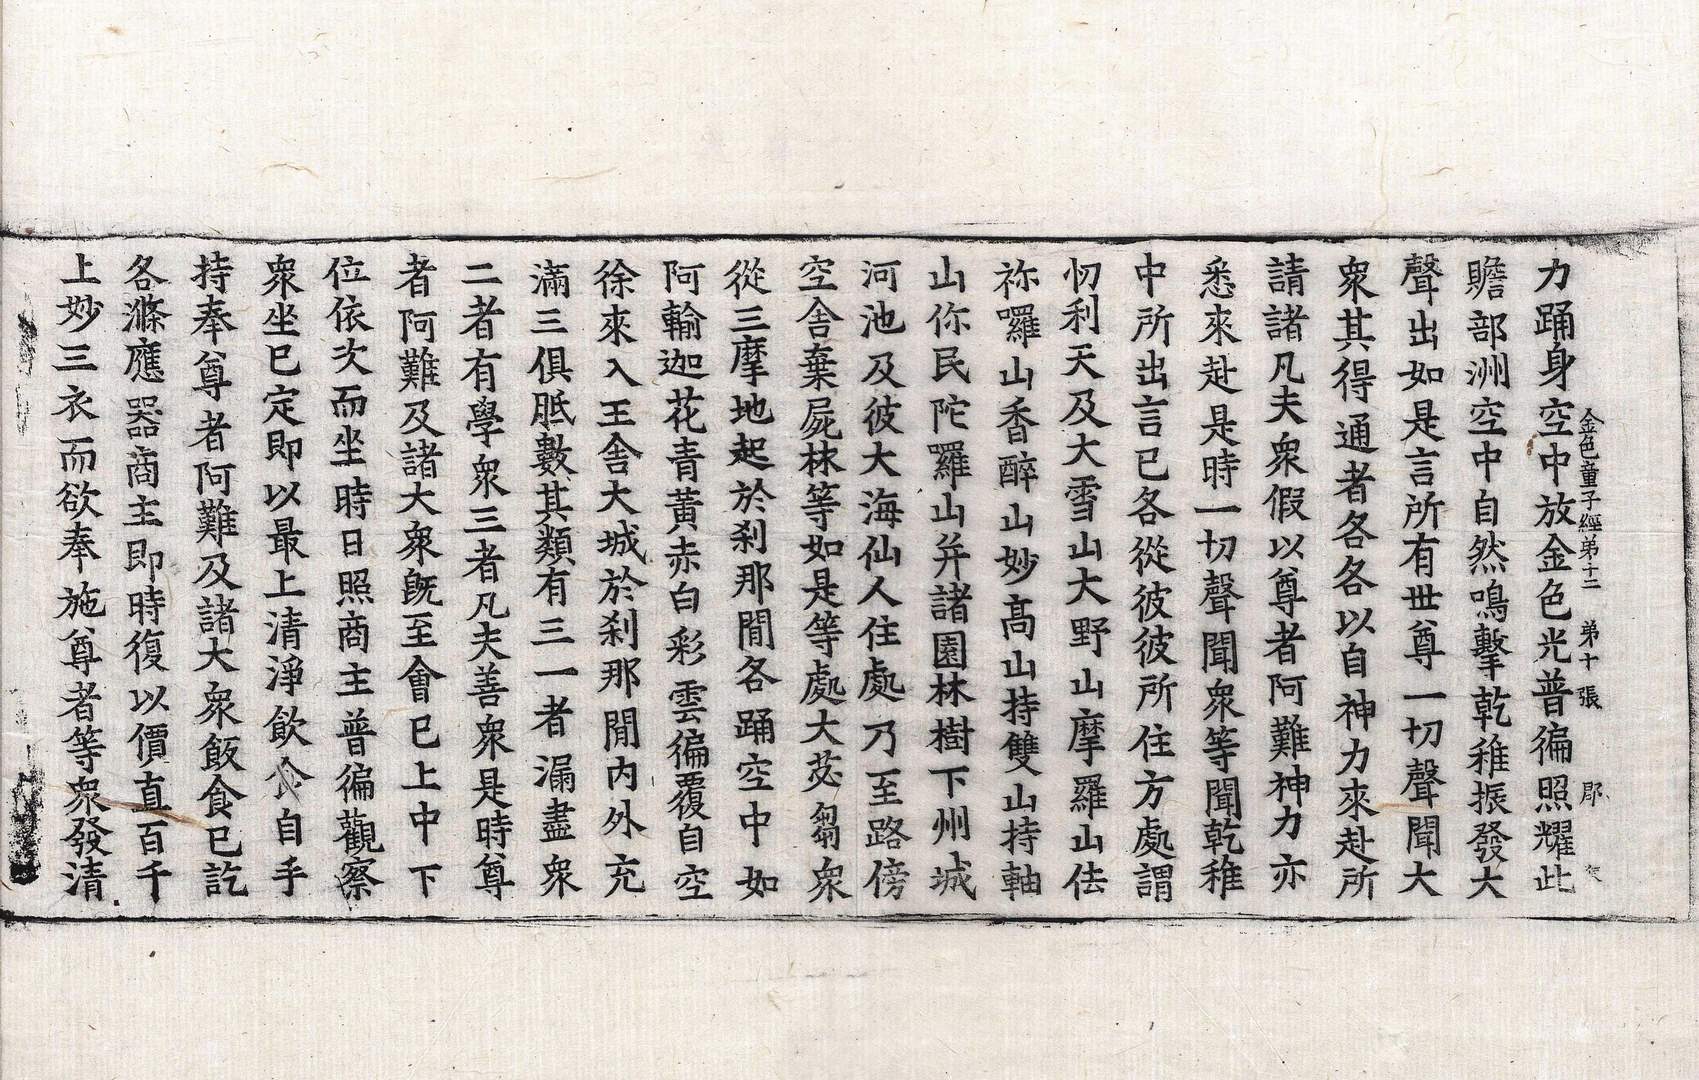 金色童子經弟十二 弟十張 郡
力踊身空中放金色光普徧照耀此
贍部洲空中自然鳴擊乾稚振發大
聲出如是言所有世尊一切聲聞大
衆其得通者各各以自神力來赴所
請諸凡夫衆假以尊者阿難神力亦
悉來赴是時一切聲聞衆等聞乾稚
中所出言已各從彼彼所住方處謂
忉利天及大雪山大野山摩羅山佉
祢囉山香醉山妙高山持雙山持軸
山你民陀羅山并諸園林樹下州城
河池及彼大海仙人住處乃至路傍
空舍棄屍林等如是等處大苾芻衆
從三摩地起於刹那閒各踊空中如
阿輸迦花青黃赤白彩雲徧覆自空
徐來入王舍大城於刹那閒內外充
滿三俱胝數其類有三一者漏盡衆
二者有學衆三者凡夫善衆是時尊
者阿難及諸大衆旣至會已上中下
位依次而坐時日照商主普徧觀察
衆坐已定即以最上清淨飲食自手
持奉尊者阿難及諸大衆飯食已訖
各滌應器商主即時復以價直百千
上妙三衣而欲奉施尊者等衆發清